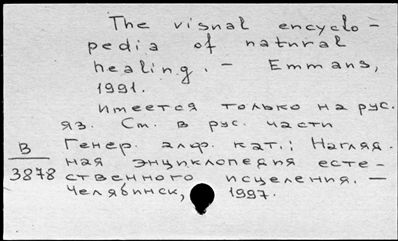 The visual encyclo-
pedia of natural
healing. - Emmans,
1991.
имеется только на рус.
яз. См. в рус. части
В Генер. алф. кат.: Нагляд.
3878 ная энциклопедия есте-
ственного исцеления. -
Челябинск, 1997.